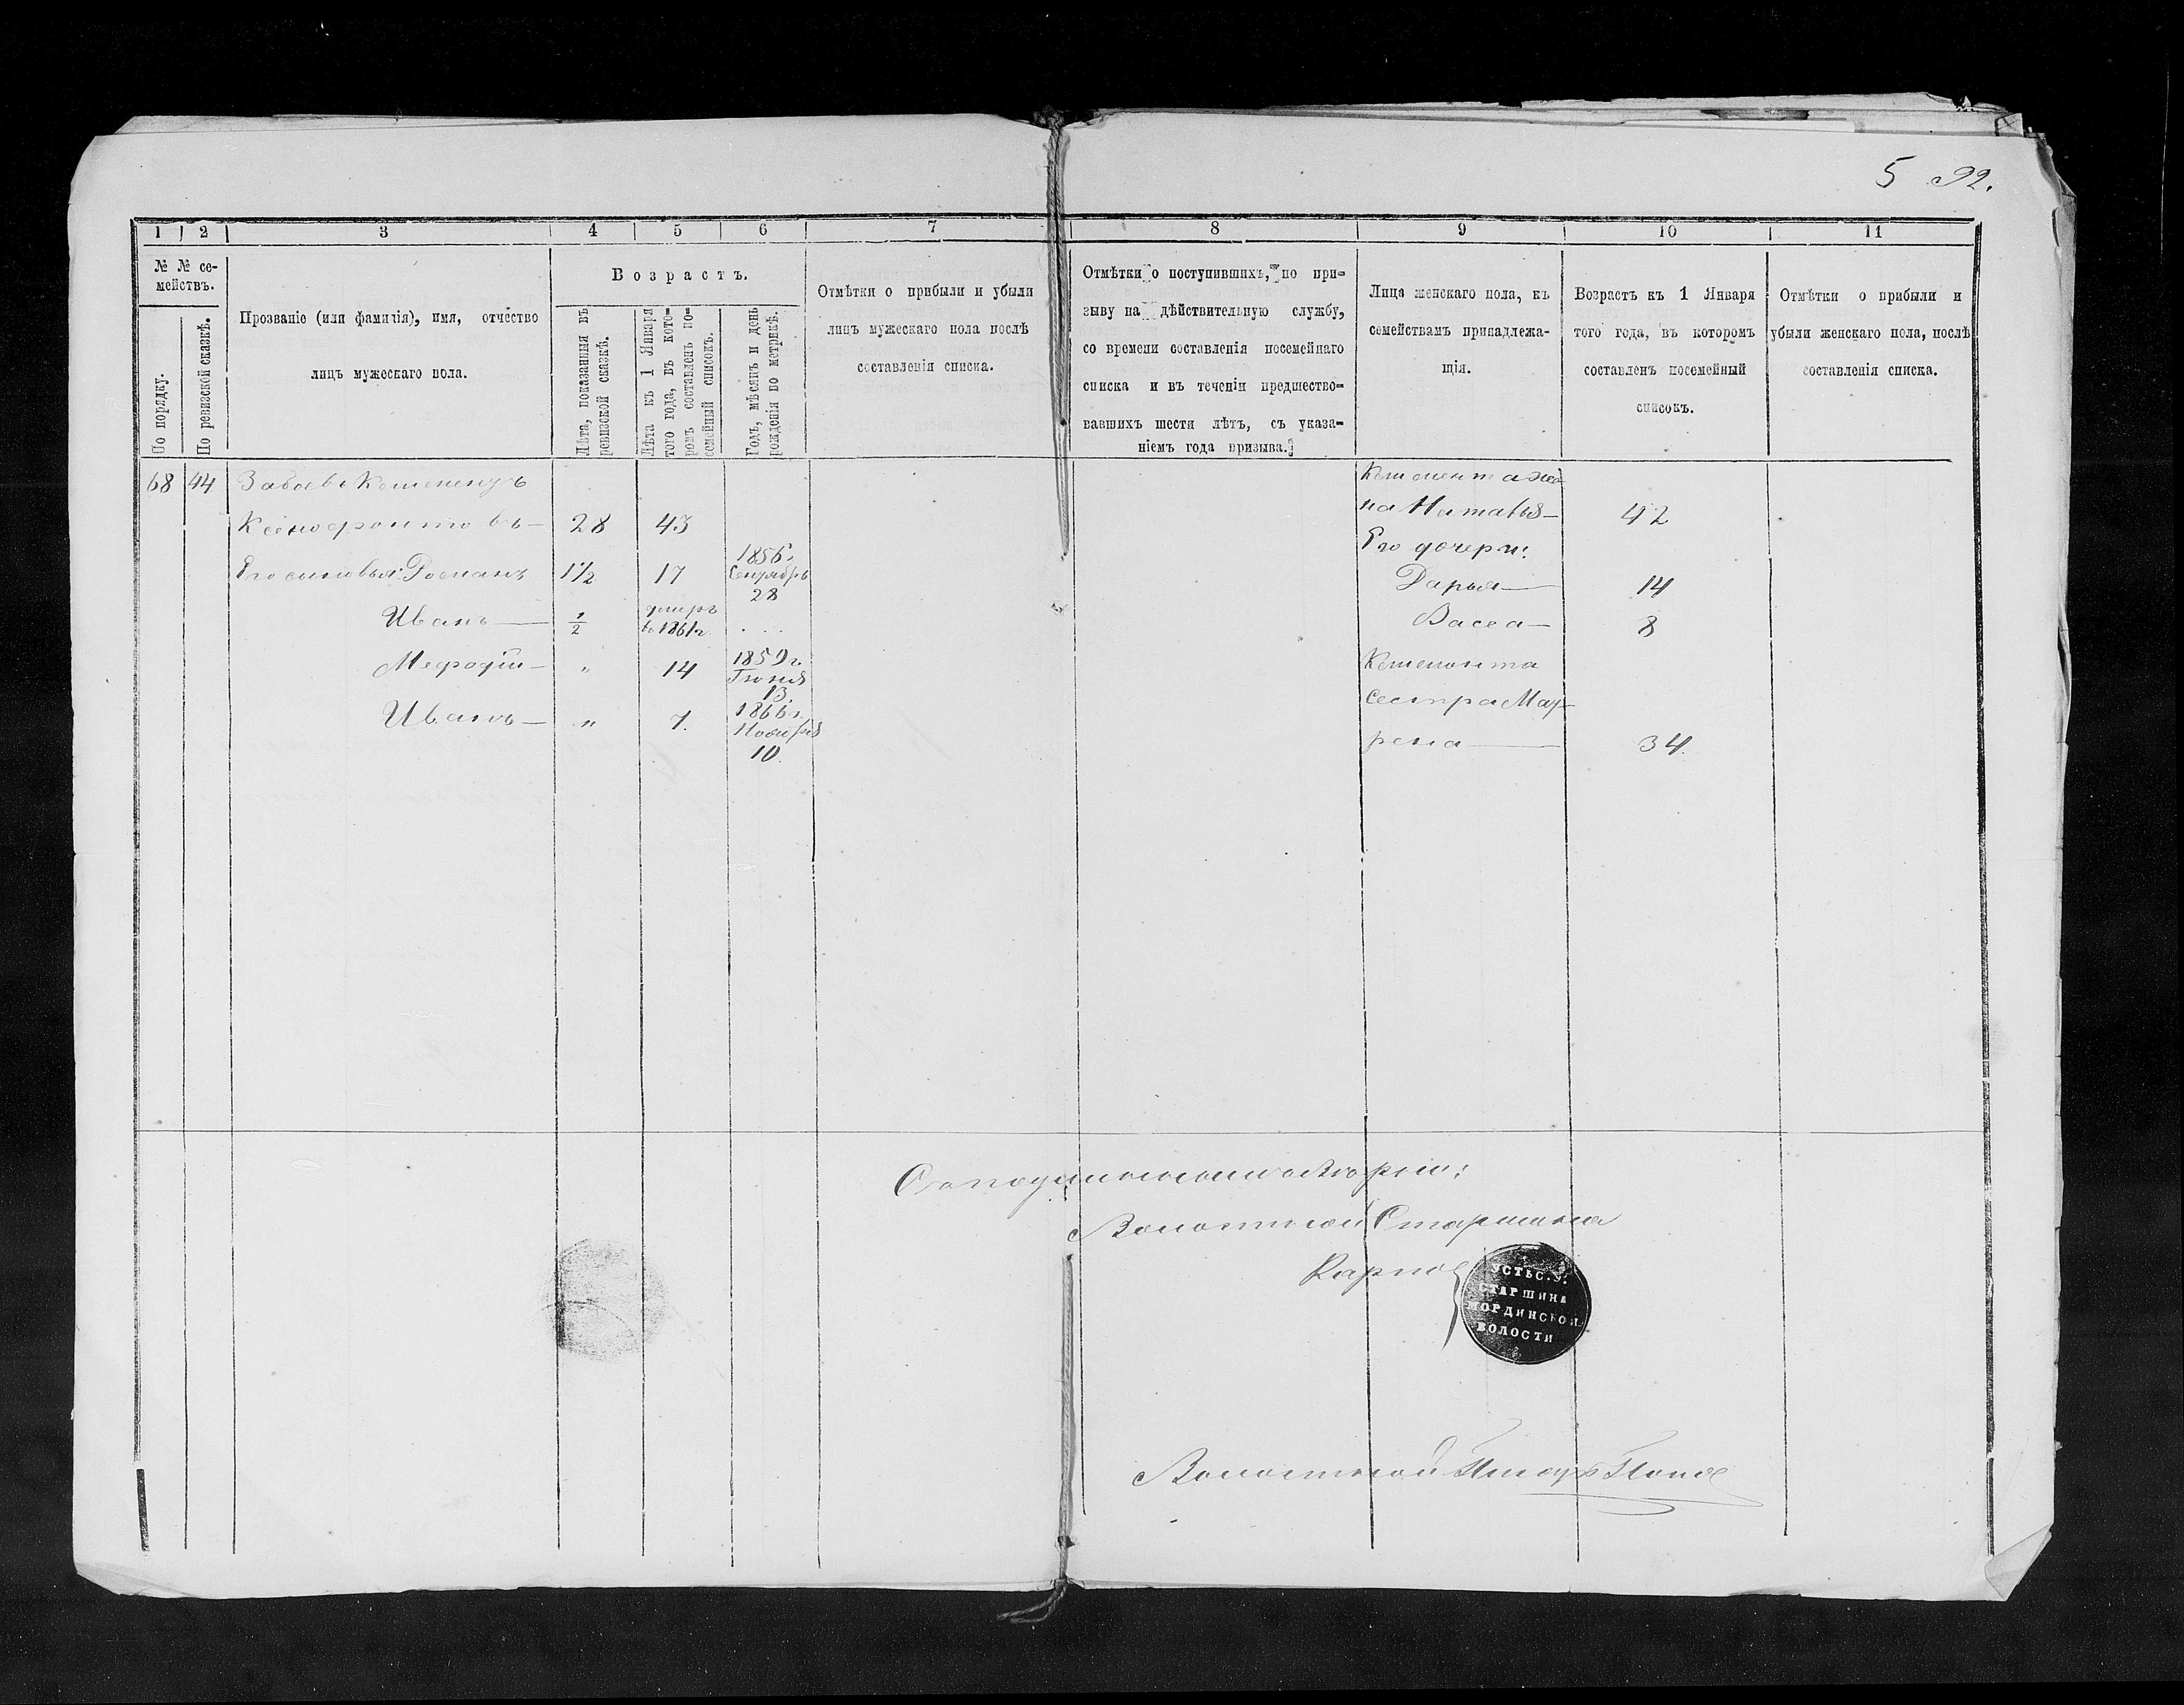 5 92.
1 2 3 4 5 6 7 8 9 10 11
№ № се-
мействъ.
По порядку.
По ревизской сказкѣ.
Прозваніе (или фамилія), имя, отчество
лицъ мужескаго пола.
Возрастъ.
Лѣта, показанныя въ
ревизской сказкѣ.
Лѣта къ 1 Января
того года, въ кото-
ромъ составленъ по-
семейный списокъ.
Годъ, мѣсяцъ и день
рожденія по метрикѣ.
Отмѣтки о прибыли и убыли
лицъ мужескаго пола послѣ
составленія списка.
Отмѣтки о поступившихъ, по при-
зыву на дѣйствительную службу,
со времени составленія посемейнаго
списка и въ теченіи предшество-
вавшихъ шести лѣтъ, съ указа-
ніемъ года призыва.
Лица женскаго пола, къ
семействамъ принадлежа-
щія.
Возрастъ къ 1 Января
того года, въ которомъ
составленъ посемейный
списокъ.
Отмѣтки о прибыли и
убыли женскаго пола, послѣ
составленія списка.
68 44 Забоевъ
Ксенофонтовъ— 28 43
Его сыновья: Романъ 1½ 17 1856г.
Сентября
28
Иванъ— ½ умеръ
въ 1861г.
Мефодій— " 14 1859г.
Іюня
13.
Иванъ— " 7. 1866г.
Ноября
10.
Климента же-
на Наталья— 42
Его дочери:
Дарья— 14
Васса— 8
Климента
сестра Мат-
рена— 34.
Волостной Старшина
Карпов
УСТЬС.У.
СТАРШИНА
МОРДИНСКОЙ
ВОЛОСТИ
Волостной Писарь Попов